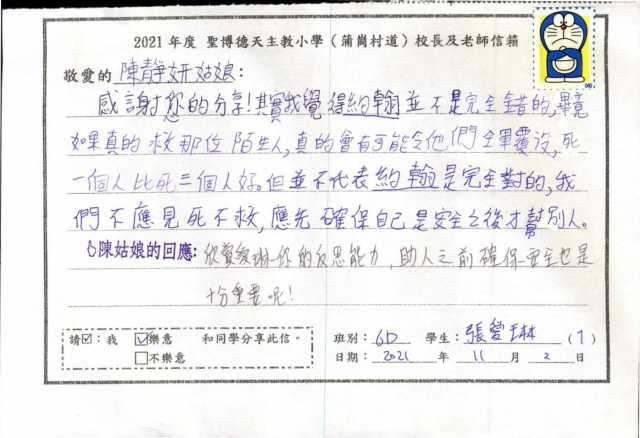 2021 年度 聖博德天主教小學 (蒲崗村道) 校長及老師信箱
敬愛的 陳靜妍姑娘：
感謝您的分享！其實我覺得約翰並不是完全錯的，畢竟
如果真的救那位陌生人，真的會有可能令他們全軍覆沒，死
一個人比死三個人好。但並不代表約翰是完全對的，我
們不應見死不救，應先確保自己是安全之後才幫別人。
陳姑娘的回應：欣賞愛琳你的反思能力，助人之前確保安全也是
十分重要呢！
請☑：我 ☑樂意 和同學分享此信。 班別：6D 學生：張愛琳 (1)
□不樂意 日期：2021 年 11 月 2 日